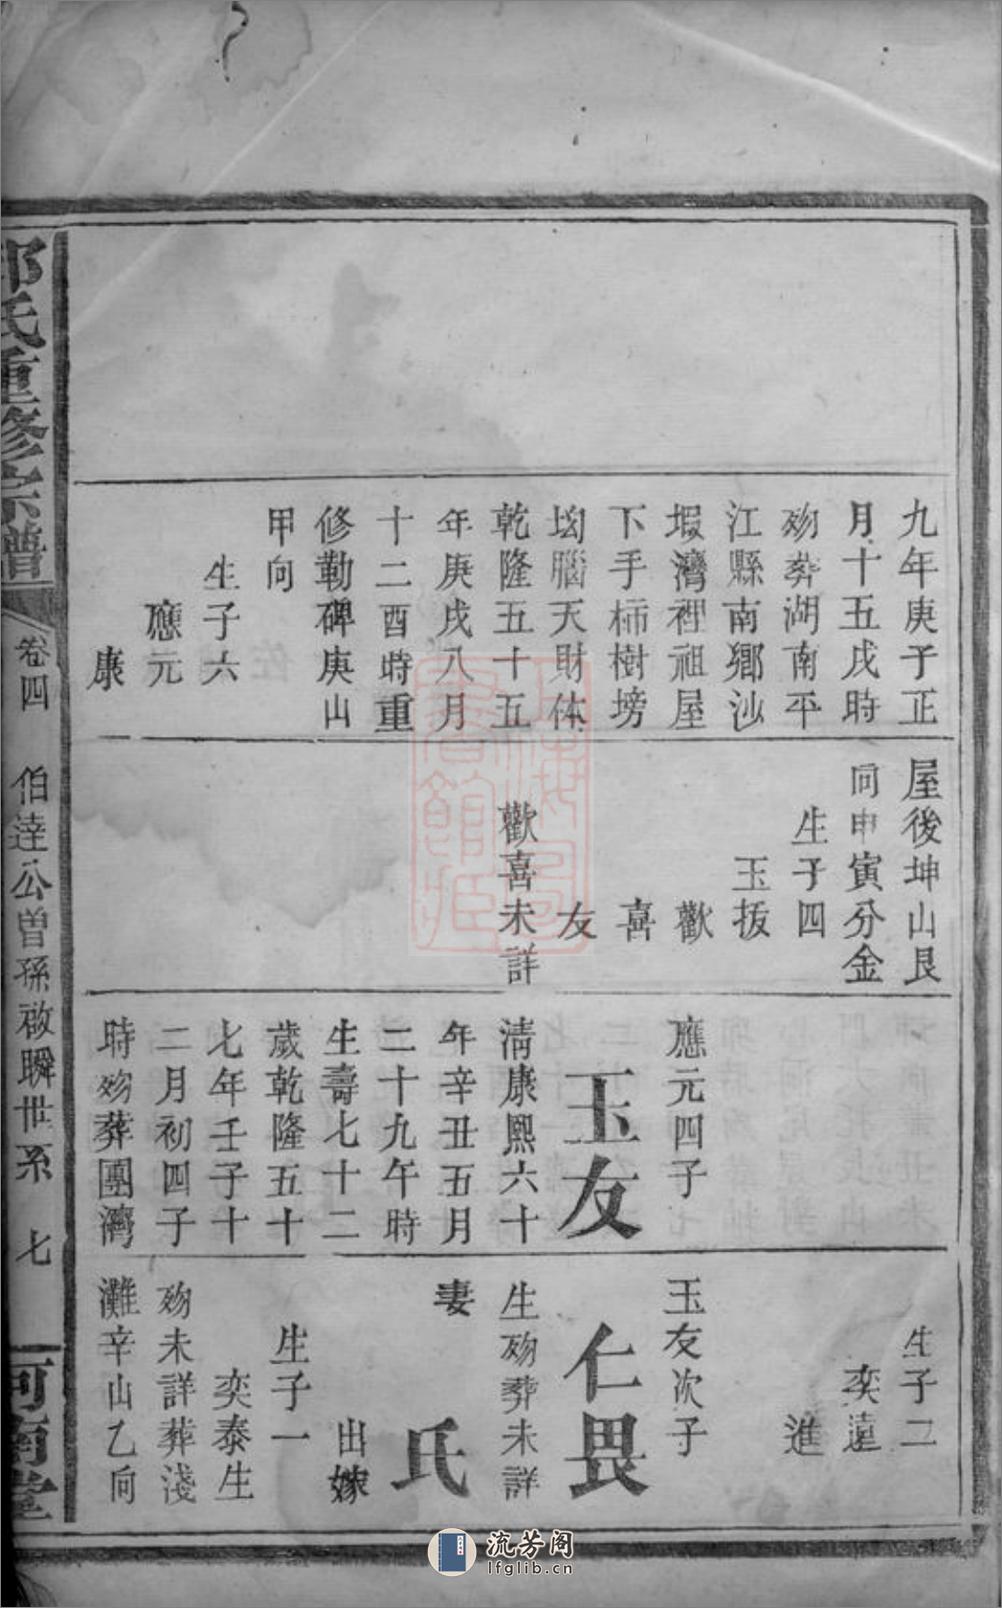 九年庚子正
月十五戌時
歿葬湖南平
江縣南鄉沙
塅灣裡祖屋
下手柿樹塝
坳腦天財体
乾隆五十五
年庚戌八月
十二酉時重
修勒碑庚山
甲向
生子六
應元
康
屋後坤山艮
向申寅分金
生子四
玉拔
歡
喜
友
歡喜未詳
應元四子
玉友
清康熙六十
年辛丑五月
二十九午時
生壽七十二
歲乾隆五十
七年壬子十
二月初四子
時歿葬團灣
生子二
奕遠
進
玉友次子
仁畏
生歿葬未詳
妻
氏
出嫁
生子一
奕泰生
歿未詳葬淺
灘辛山乙向
氏重修宗譜
卷四
伯達公曾孫啟瞬世系
七
河南堂
流芳阁
lfglib.cn